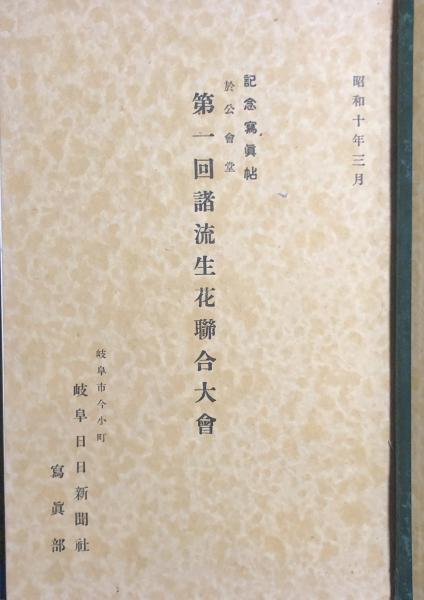 昭和十年三月
記念寫眞帖
於公會堂
第一回諸流生花聯合大會
岐阜市今小町
岐阜日日新聞社
寫眞部